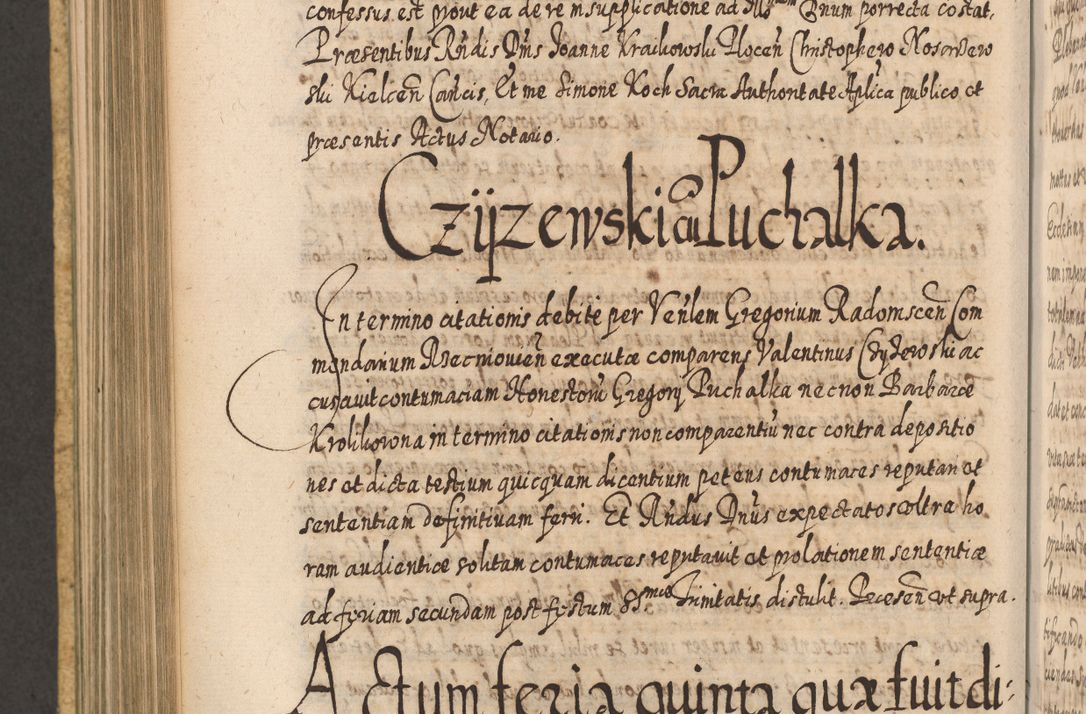 confessus est prout ea de re in supplicatione ad Illmum Dnum porrecta costat.
Præsentibus Rndis Dnis Joanne Kraikowski Plocen Christophero Nosardero
ski Kielcen Cancis, Et me Simone Koch Sacra Authoritate Aplica publico et
præsentis Actus Notario.
Czÿzewski cū Puchalka.
In termino citationis debite per Venlem Gregorium Radomscen Com
mendarium executæ comparens Valentinus Czyzewski ac
cusavit contumaciam Honestorū Gregorij Puchalka necnon Barbaræ
Krolikowna in termino citationis non comparentiū nec contra depositio
nes et dicta testium quicquam dicentium petens contumaces reputari et
sententiam definitivam ferri. Et Rndus Dnus expectatos ultra ho
ram audientiæ solitam contumaces reputavit et prolationem sententiæ
ad feriam secundam post festum SSmæ Trinitatis distulit. Præsen ut supra.
Actum feria quinta quæ fuit di: